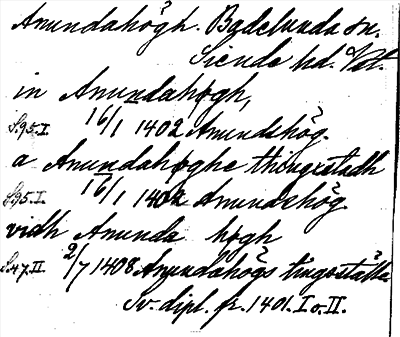 Anundahögh. Badelunda sn.
Siende hd. Vet.
in Anundahøgh,
S.95.I. 16/1 1402 Anundshög.
a Anundahøghe thingxstadh
S.95.I. 16/1 1402 Anundshög
vidh Anunda høgh
S.47.II. 2/7 1408 Anundahögs tingsställe.
Sv. dipl. fr. 1401. I o. II.